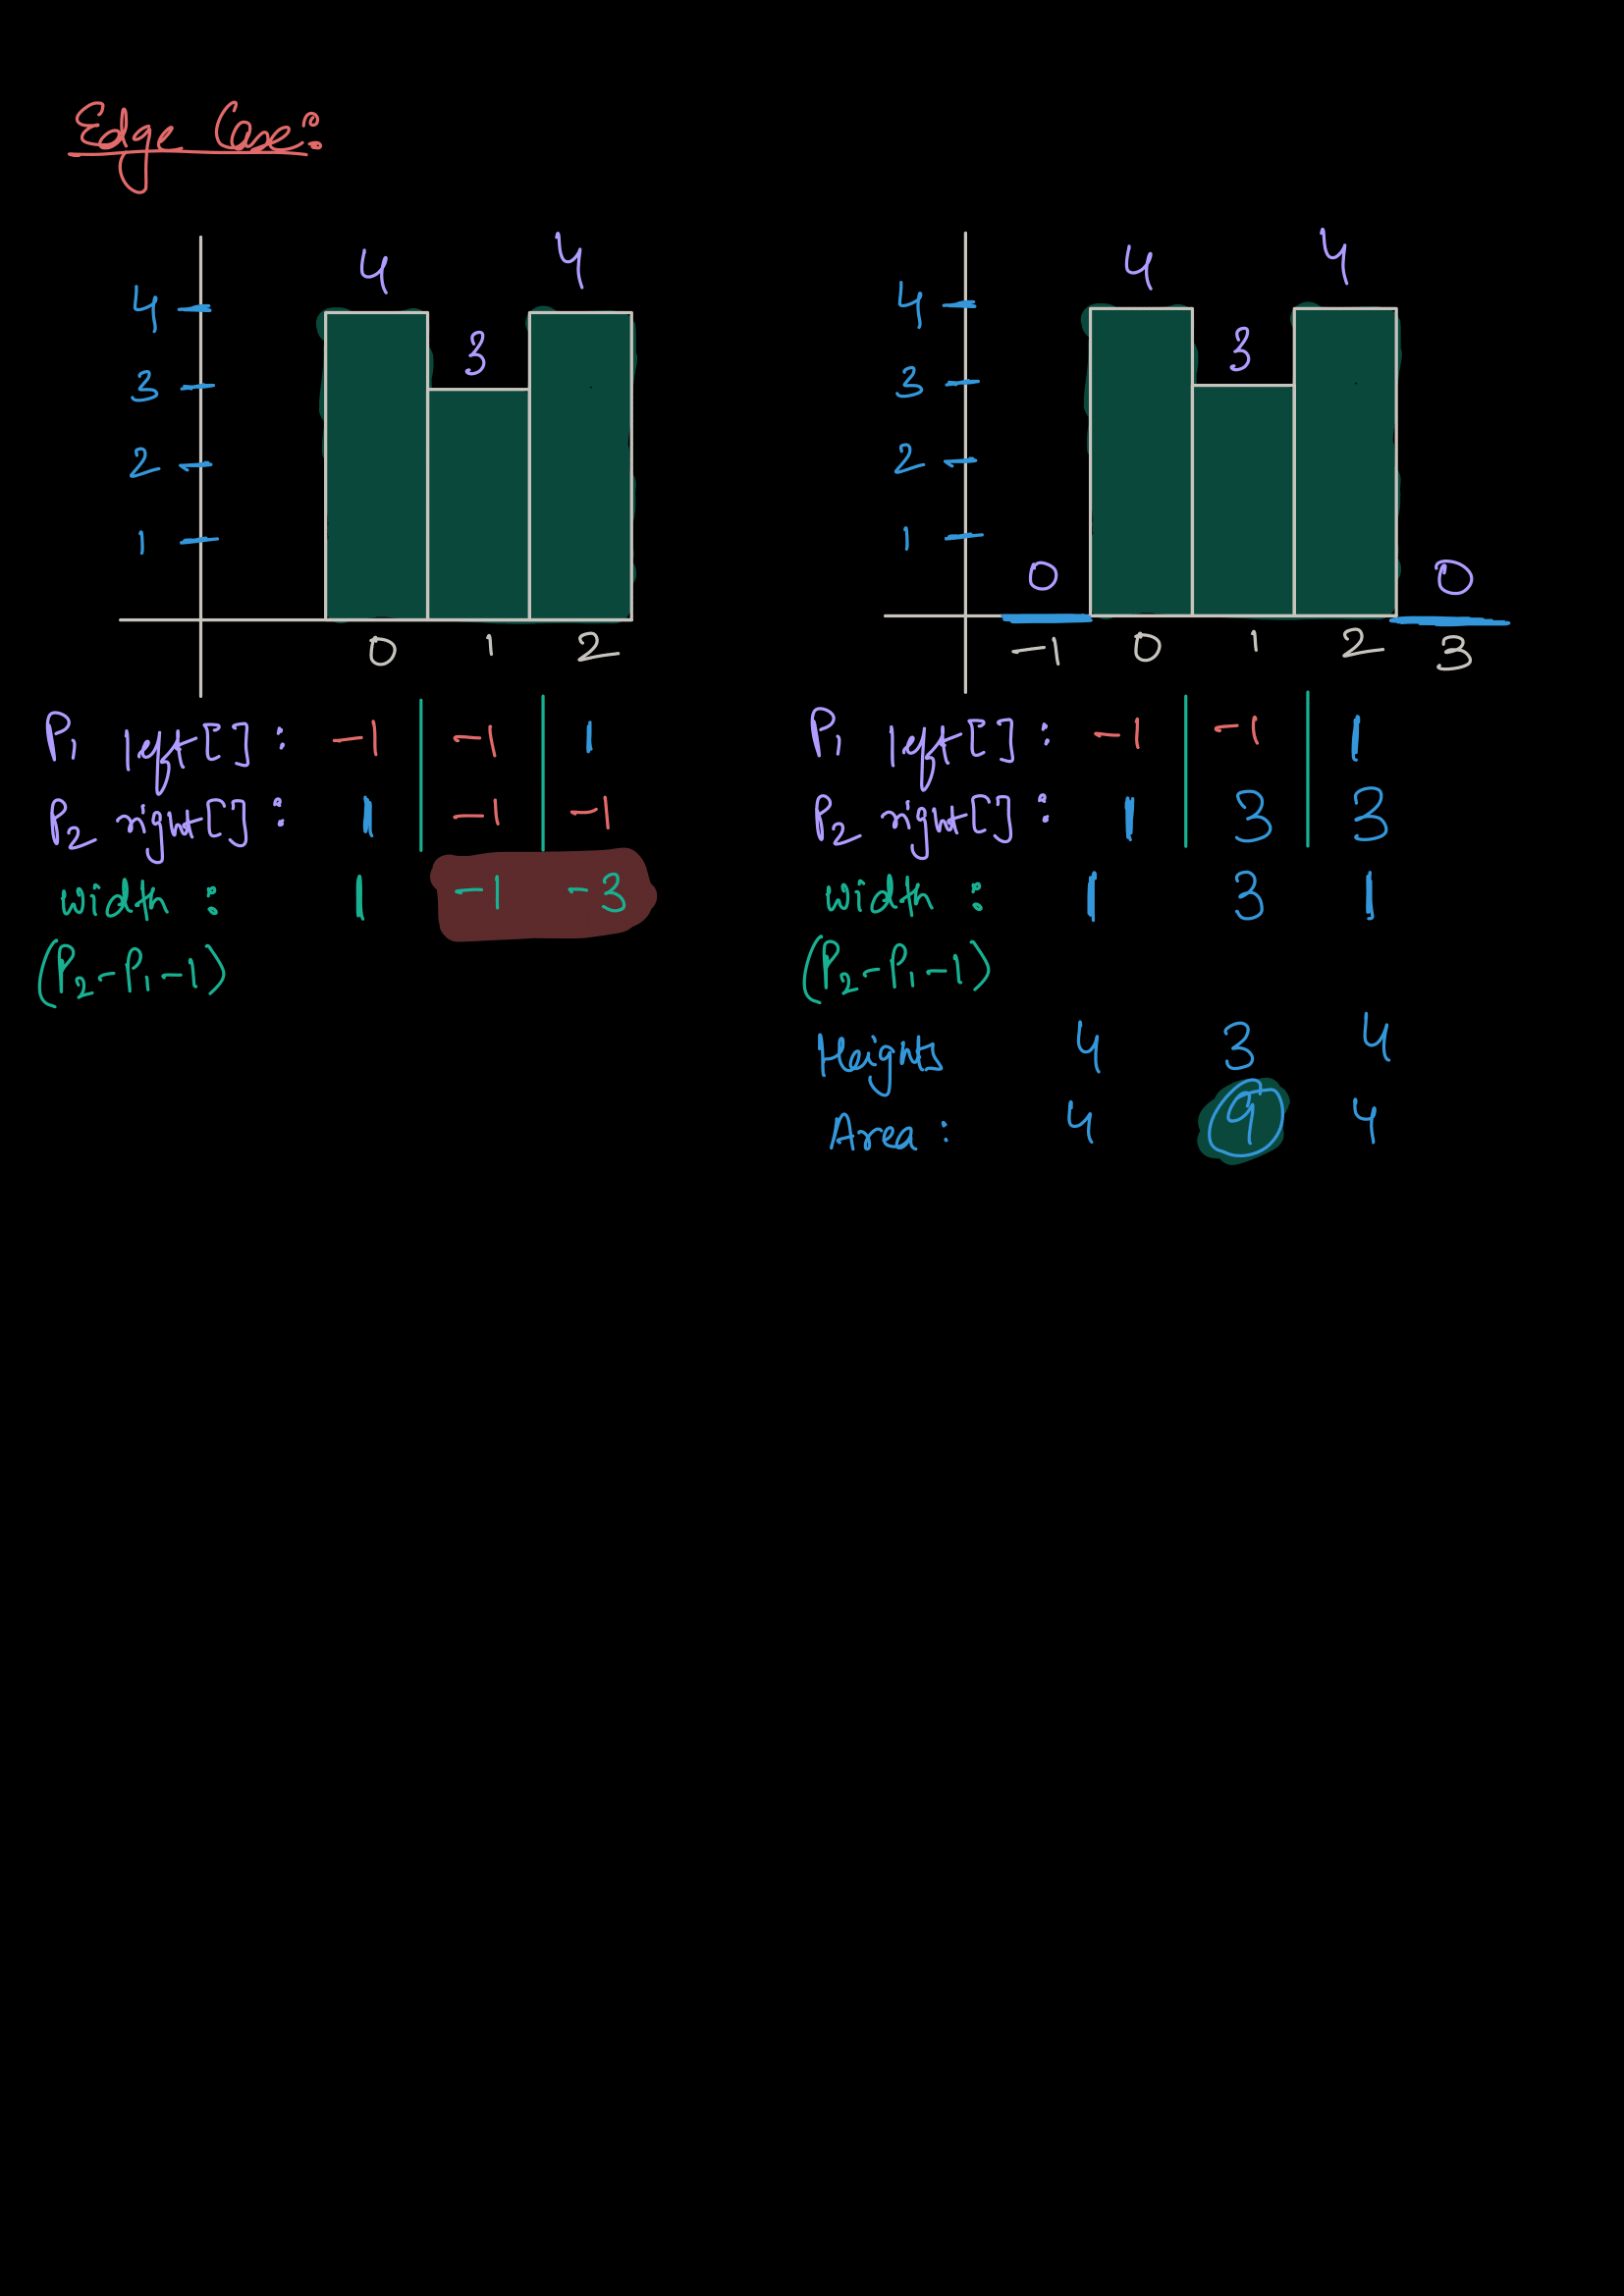 Edge Case:
4 4
4
3 3
2
1
0 1 2
P1 left[] : -1 -1 1
P2 right[] : 1 -1 -1
width : 1 -1 -3
(P2-P1-1)
4 4
4
3 3
2
1
0 0
-1 0 1 2 3
P1 left[] : -1 -1 1
P2 right[] : 1 3 3
width : 1 3 1
(P2-P1-1)
Heights 4 3 4
Area : 4 9 4